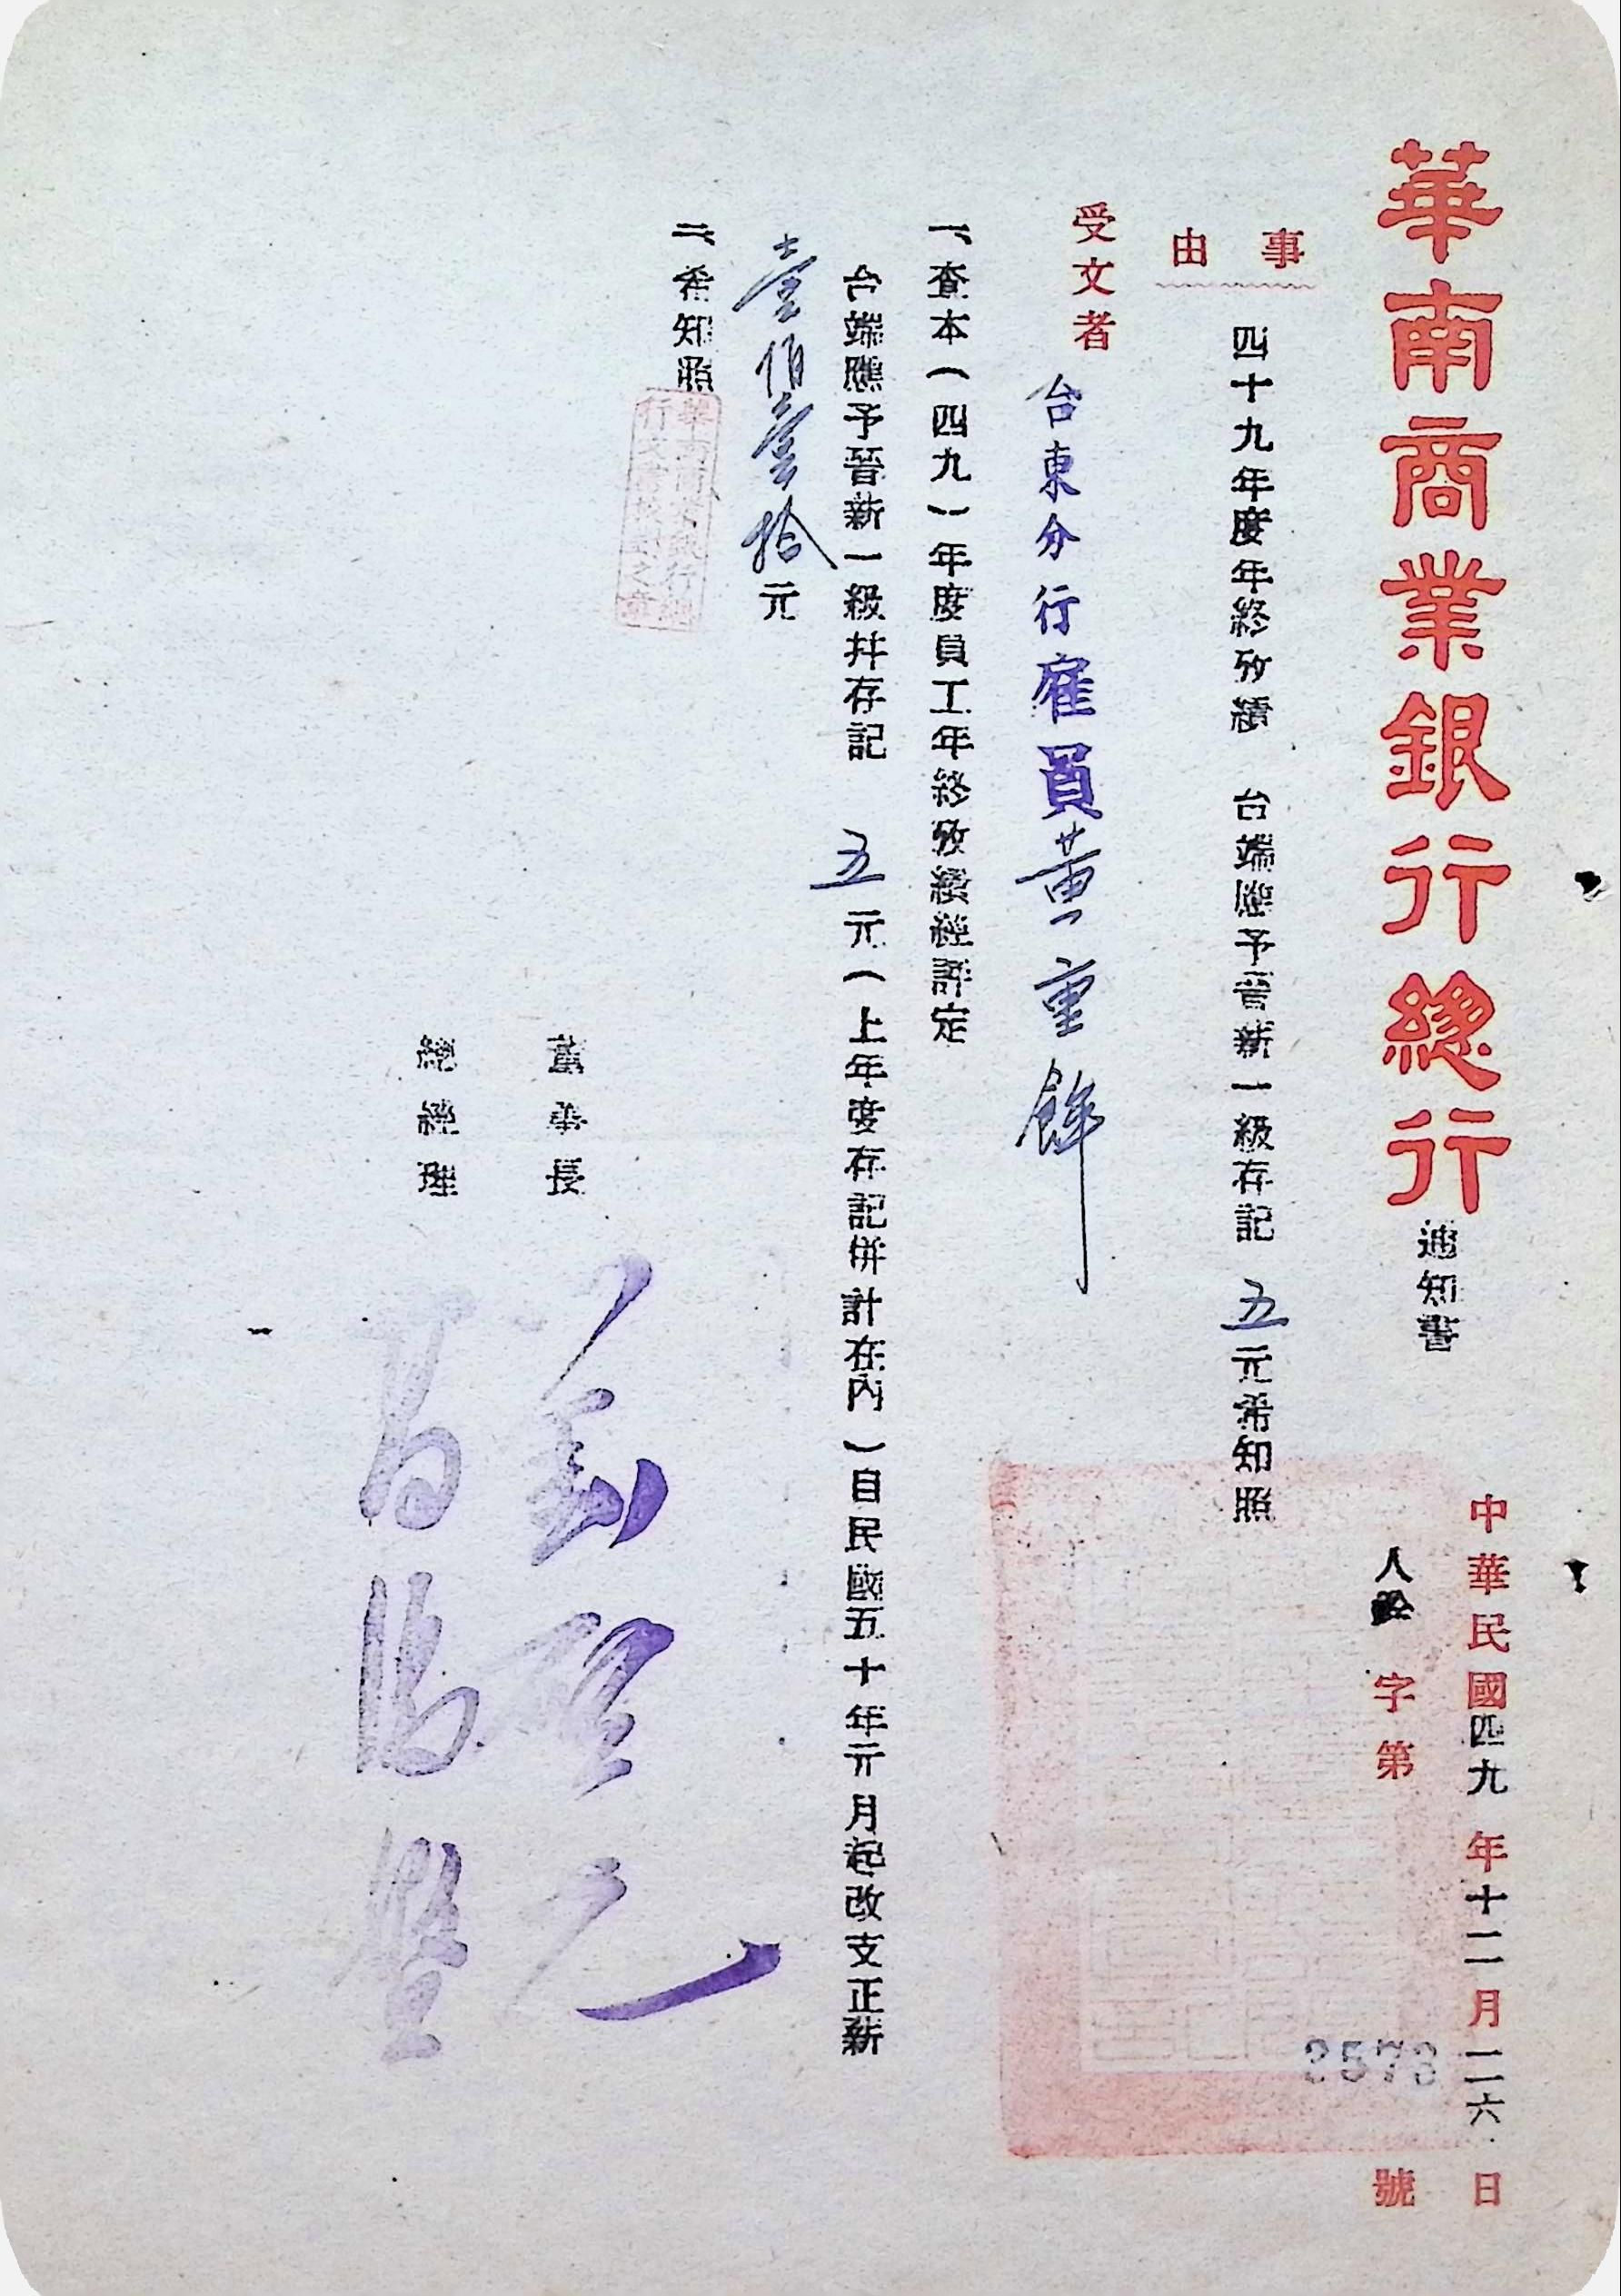 華南商業銀行總行通知書
中華民國四九年十二月二六日
人 字第 2573 號
事由
四十九年度年終攷績 台端應予晉薪一級存記 五元希知照
受文者 台東分行雇員黃重鉾
一、查本(四九)年度員工年終攷績經評定
台端應予晉薪一級并存記 五元(上年度存記併計在內)自民國五十年元月起改支正薪
壹佰壹拾元
二、希知照
董事長
總經理